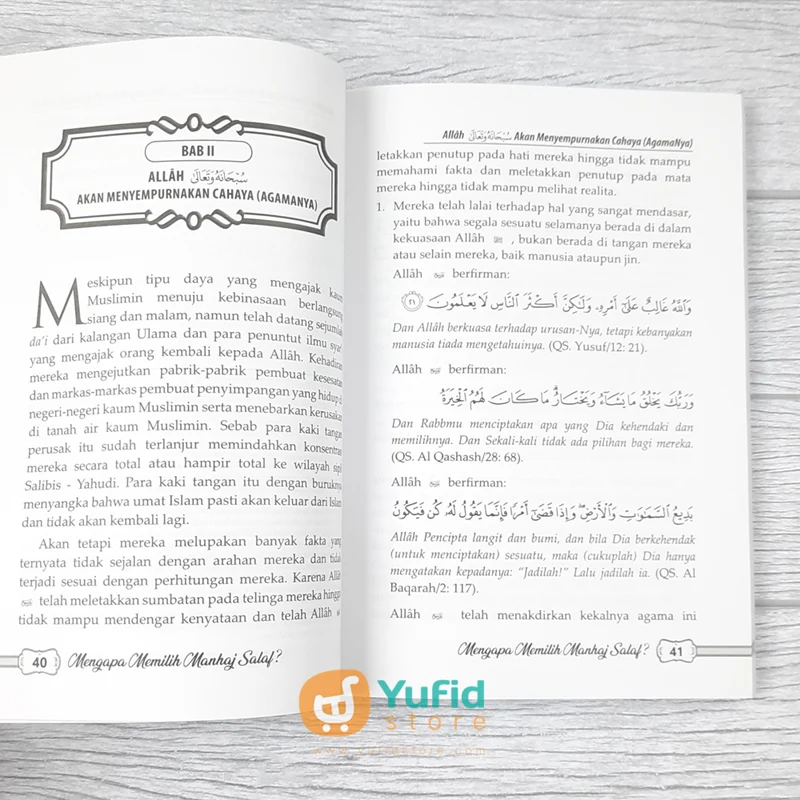 BAB II
ALLÂH سُبْحَانَهُ وَتَعَالَى
AKAN MENYEMPURNAKAN CAHAYA (AGAMANYA)
Meskipun tipu daya yang mengajak kaum
Muslimin menuju kebinasaan berlangsung
siang dan malam, namun telah datang sejumlah
da'i dari kalangan Ulama dan para penuntut ilmu syar'
yang mengajak orang kembali kepada Allâh. Kehadiran
mereka mengejutkan pabrik-pabrik pembuat kesesatan
dan markas-markas pembuat penyimpangan yang hidup di
negeri-negeri kaum Muslimin serta menebarkan kerusakan
di tanah air kaum Muslimin. Sebab para kaki tangan
perusak itu sudah terlanjur memindahkan konsentrasi
mereka secara total atau hampir total ke wilayah sipil
Salibis - Yahudi. Para kaki tangan itu dengan buruknya
menyangka bahwa umat Islam pasti akan keluar dari Islam
dan tidak akan kembali lagi.
Akan tetapi mereka melupakan banyak fakta yang
ternyata tidak sejalan dengan arahan mereka dan tidak
terjadi sesuai dengan perhitungan mereka. Karena Allâh
telah meletakkan sumbatan pada telinga mereka hingga
tidak mampu mendengar kenyataan dan telah Allâh
40 Mengapa Memilih Manhaj Salaf?
Allâh سُبْحَانَهُ وَتَعَالَى Akan Menyempurnakan Cahaya (AgamaNya)
letakkan penutup pada hati mereka hingga tidak mampu
memahami fakta dan meletakkan penutup pada mata
mereka hingga tidak mampu melihat realita.
1. Mereka telah lalai terhadap hal yang sangat mendasar,
yaitu bahwa segala sesuatu selamanya berada di dalam
kekuasaan Allâh , bukan berada di tangan mereka
atau selain mereka, baik manusia ataupun jin.
Allâh berfirman:
وَاللَّهُ غَالِبٌ عَلَىٰ أَمْرِهِ وَلَٰكِنَّ أَكْثَرَ النَّاسِ لَا يَعْلَمُونَ ٢١
Dan Allâh berkuasa terhadap urusan-Nya, tetapi kebanyakan
manusia tiada mengetahuinya. (QS. Yusuf/12: 21).
Allâh berfirman:
وَرَبُّكَ يَخْلُقُ مَا يَشَاءُ وَيَخْتَارُ ۗ مَا كَانَ لَهُمُ الْخِيَرَةُ
Dan Rabbmu menciptakan apa yang Dia kehendaki dan
memilihnya. Dan Sekali-kali tidak ada pilihan bagi mereka.
(QS. Al Qashash/28: 68).
Allâh berfirman:
بَدِيعُ السَّمَاوَاتِ وَالْأَرْضِ ۖ وَإِذَا قَضَىٰ أَمْرًا فَإِنَّمَا يَقُولُ لَهُ كُن فَيَكُونُ
Allâh Pencipta langit dan bumi, dan bila Dia berkehendak
(untuk menciptakan) sesuatu, maka (cukuplah) Dia hanya
mengatakan kepadanya: "Jadilah!" Lalu jadilah ia. (QS. Al
Baqarah/2: 117).
Allâh telah menakdirkan kekalnya agama ini
Mengapa Memilih Manhaj Salaf? 41
Yufid
store